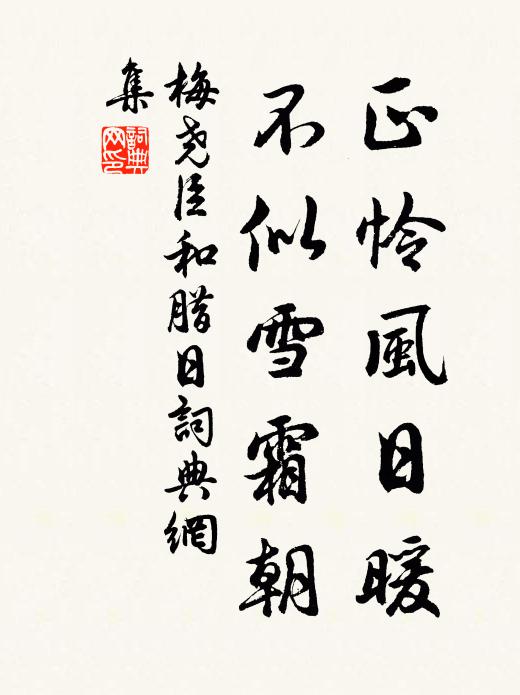 正怜風日暖
不似雪霜朝
梅尧臣和腊日詞典網
集
詞典網印